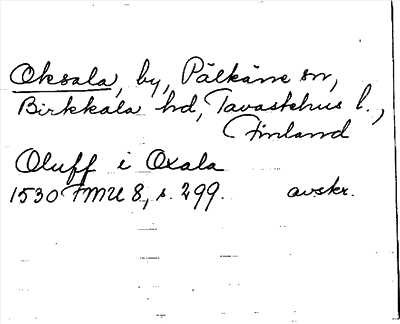 Oksala, by, Pälkäne sn,
Birkkala hd, Tavastehus l.,
Finland
Oluff i Oxala
1530 FMU 8, s. 299. avskr.